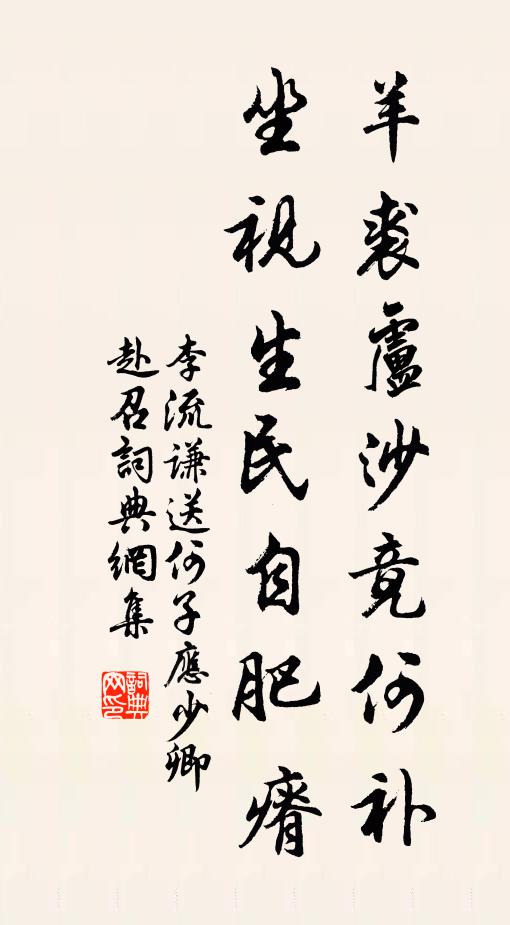 羊裘盧沙竟何补
坐視生民自肥瘠
李流謙送何子應少卿
赴召詞典網集
詞典網印